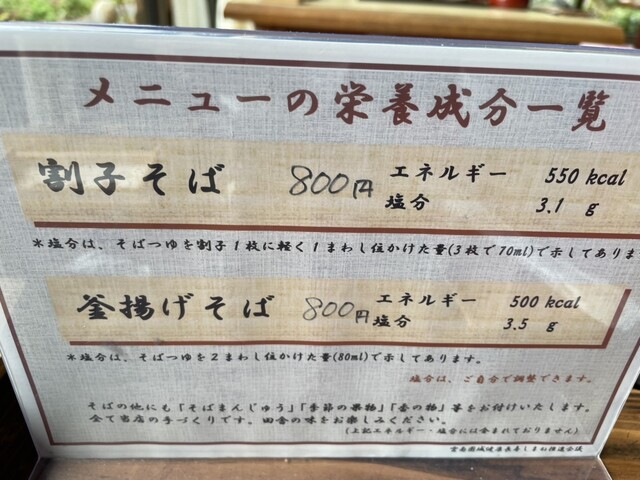 メニューの栄養成分一覧
割子そば 800円 エネルギー 550 kcal
塩分 3.1 g
*塩分は、そばつゆを割子1枚に軽く1まわし位かけた量(3枚で70ml)で示してありま
釜揚げそば 800円 エネルギー 500 kcal
塩分 3.5 g
*塩分は、そばつゆを2まわし位かけた量(80ml)で示してあります。
塩分は、ご自分で調整できます。
そばの他にも「そばまんじゅう」「季節の果物」「香の物」等をお付けいたします。
全て当店の手づくりです。田舎の味をお楽しみください。
(上記エネルギー・塩分には含まれておりません)
雲南圏域健康長寿しまね推進会議